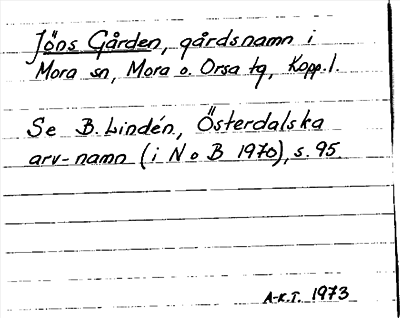 Jöns Gården, gårdsnamn i
Mora sn, Mora o. Orsa tg, Kopp. l.
Se B. Lindén, Österdalska
arv-namn (i N o B 1970), s. 95.
A-K.T. 1973